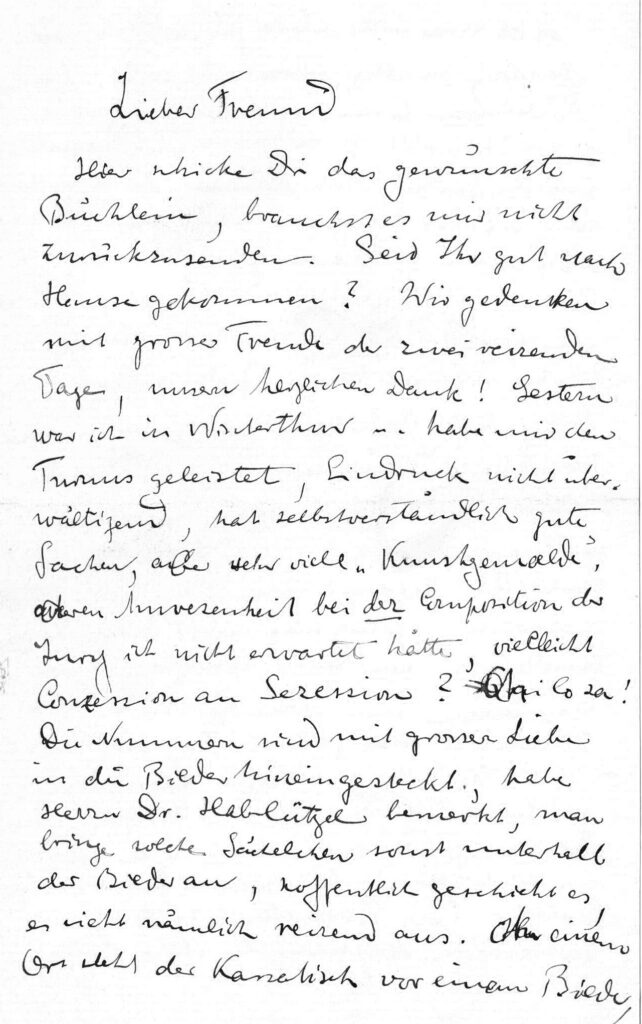 Lieber Freund
Hier schicke Dir das gewünschte
Büchlein, brauchst es mir nicht
zurückzusenden. Seid Ihr gut nach
Hause gekommen? Wir gedenken
mit grosser Freude der zwei reizenden
Tage, unsern herzlichen Dank! Gestern
war ich in Winterthur u. habe mir den
Turnus geleistet, Eindruck nicht über-
wältigend, hat selbstverständlich gute
Sachen, aber sehr viell „Kunstgemälde",
deren Anwesenheit bei der Composition der
Jury ich nicht erwartet hätte, vielleicht
Conzession an Sezession? Chi lo sa!
Die Nummern sind mit grosser Liebe
in die Bilder hineingesteckt, habe
Herrn Dr. Hablützel bemerkt, man
bringe solche Sächelchen sonst unterhalb
der Bilder an, hoffentlich geschieht es,
es sieht nämlich reizend aus. An einem
Ort steht der Kassatisch vor einem Bilde,